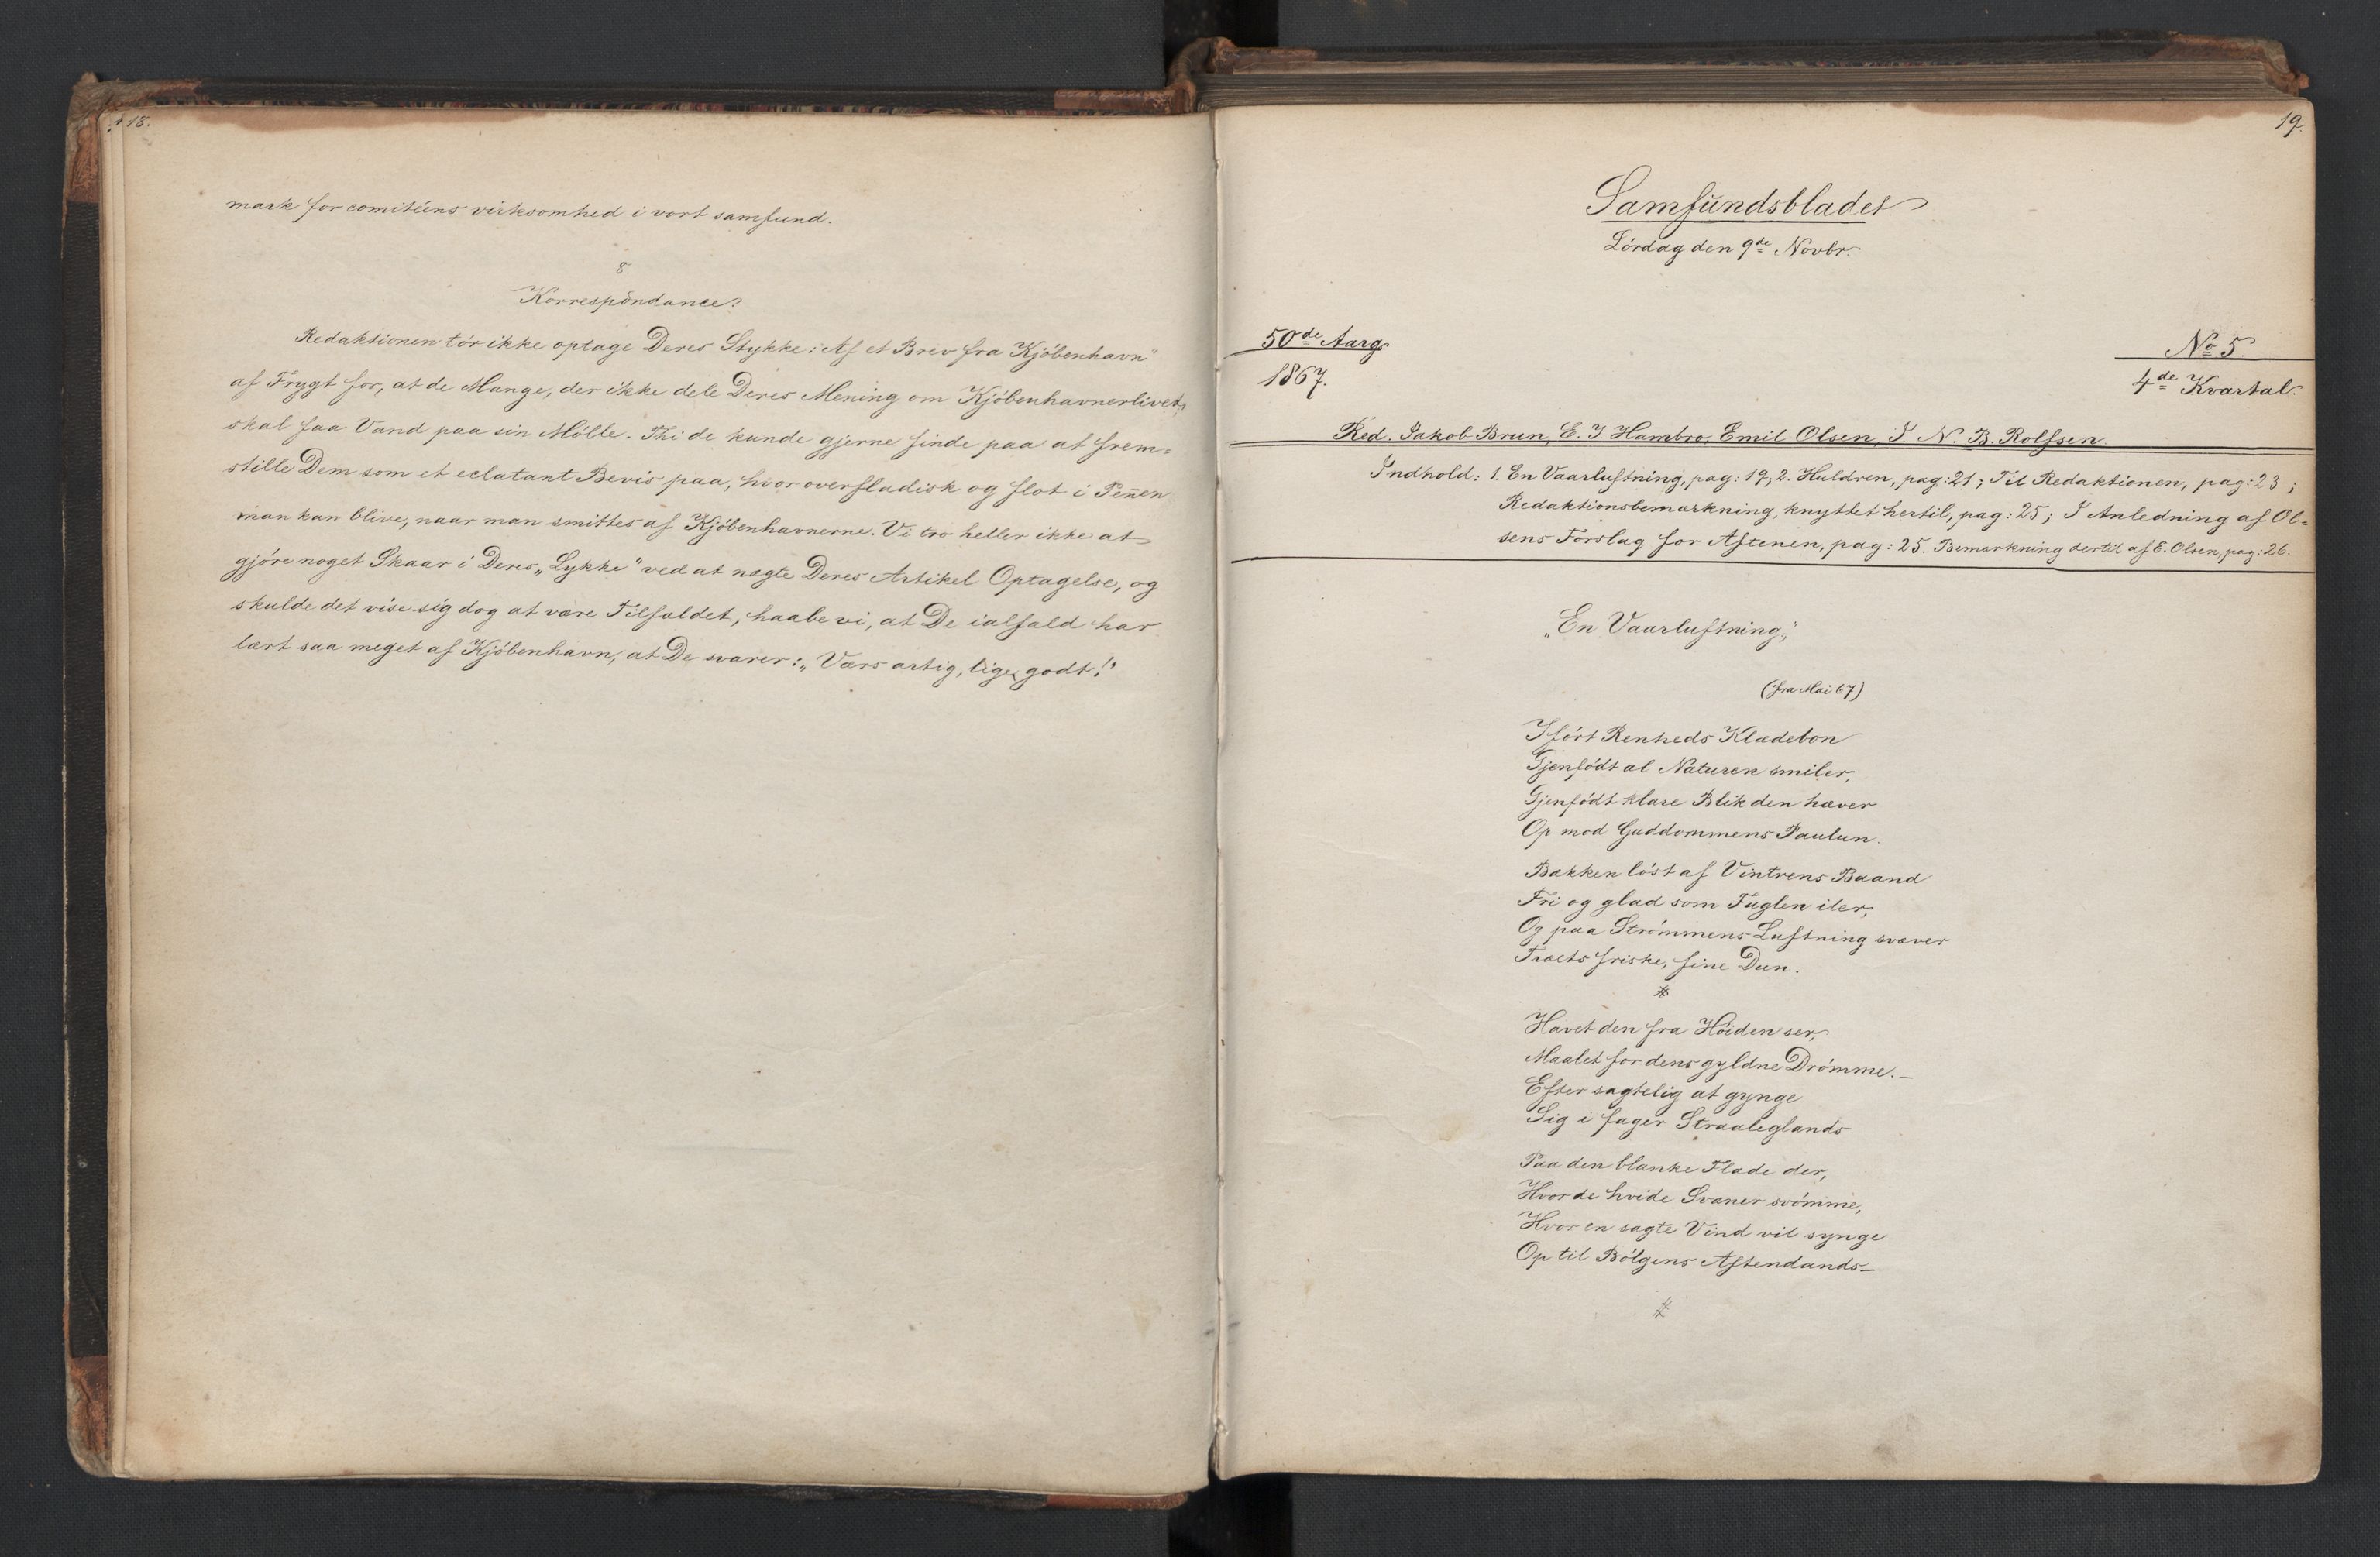 18.
mark for comitéens virksomhed i vort samfund.
8
Korrespóndance:
Redaktionen tór ikke optage Deres Stykke: Af et Brev fra Kjóbenhavn"
af Frygt for, at de Mange, der ikke dele Deres Mening om Kjóbenhavnerlivet,
skal faa Vand paa sin Mólle. Thi de kunde gjerne finde paa at frem=
stille Dem som et eclatant Bevis paa, hvor overfladisk og flot i Peñen
man kan blive, naar man smittes af Kjóbenhavnerne. Vi tro heller ikke at
gjóre noget Skaar i Deres „Lykke" ved at nægte Deres Artikel Optagelse, og
skulde det vise sig dog at være Tilfældet, haabe vi, at De ialfald har
lært saa meget af Kjóbenhavn, at De svarer: „Værs artig, lige godt!"
19.
Samfundsbladet
Lórdag den 9de Novbr.
50de Aarg.
1867.
No 5.
4de Kvartal.
Red. Jakob Brun, E. I Hambro, Emil Olsen, I. N. B. Rolfsen.
Indhold: 1. En Vaarluftning, pag: 19, 2. Huldren, pag: 21; Til Redaktionen, pag: 23;
Redaktionsbemærkning, knyttet hertil, pag: 25; I Anledning af Ol=
sens Forslag for Aftenen, pag: 25. Bemærkning dertil af E. Olsen, pag: 26.
„En Vaarluftning,"
(fra Mai 67)
Ifórt Renheds Klædebon
Gjenfódt al Naturen smiler,
Gjenfódt klare Blik den hæver
Op mod Guddommens Paulun.
Bækken lóst af Vintrens Baand
Fri og glad som Fuglen iler,
Og paa Strómmens Luftning svæver
Træets friske, fine Dun.
*
Havet den fra Hóiden ser,
Maalet for dens gyldne Drómme. —
Efter sagtelig at gynge
Sig i fager Straaleglands
Paa den blanke Flade der,
Hvor de hvide Svaner svómme,
Hvor en sagte Vind vil synge
Op til Bólgens Aftendands —
*